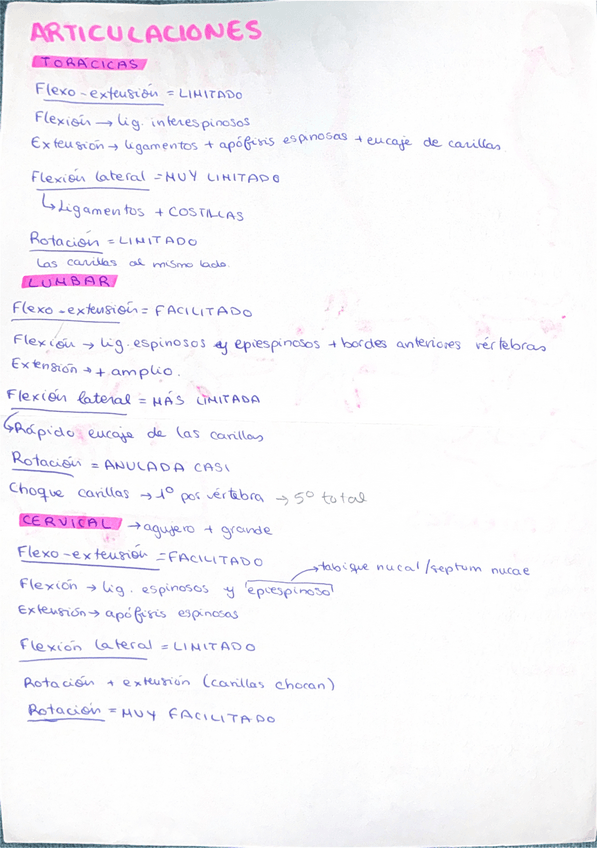 ARTICULACIONES
TORACICAS
Flexo-extensión = LIMITADO
Flexión → lig. interespinosos
Extensión → ligamentos + apófisis espinosas + encaje de carillas.
Flexión lateral = MUY LIMITADO
↳ Ligamentos + COSTILLAS
Rotación = LIMITADO
Las carillas al mismo lado.
LUMBAR
Flexo-extensión = FACILITADO
Flexión → lig. espinosos y epiespinosos + bordes anteriores vértebras
Extensión → + amplio.
Flexión lateral = MÁS LIMITADA
↳ Rápido encaje de las carillas
Rotación = ANULADA CASI
Choque carillas → 1º por vértebra → 5º total
CERVICAL → agujero + grande
Flexo-extensión = FACILITADO
→ tabique nucal/septum nucae
Flexión → lig. espinosos y epiespinoso
Extensión → apófisis espinosas
Flexión lateral = LIMITADO
Rotación + extensión (carillas chocan)
Rotación = MUY FACILITADO